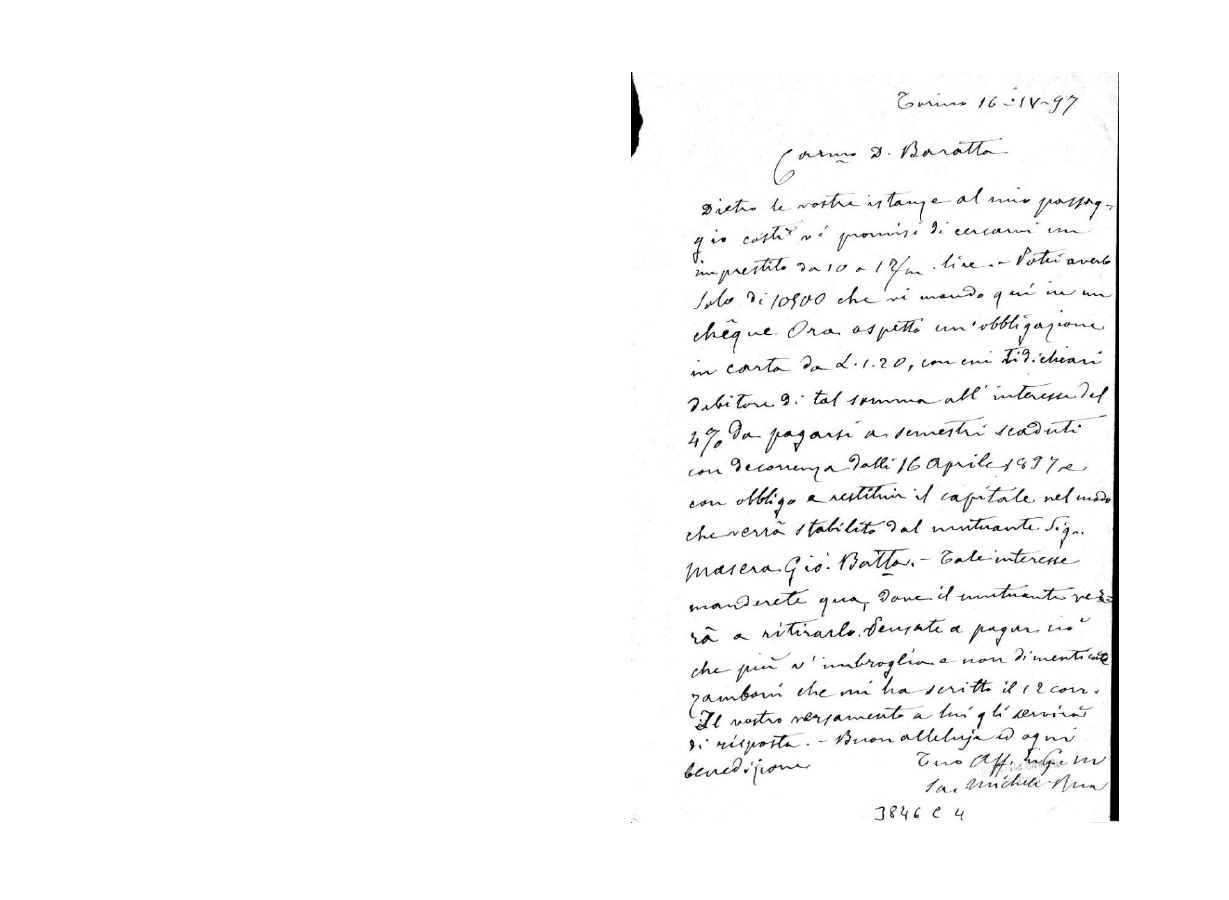 Torino 16-IV-97
Carmo D. Baratta
Dietro le vostre istanze al mio passag-
gio costì vi promisi di cercarvi un
imprestito da 10 a 12/m lire. - Potei averlo
solo di 10500 che vi mando quì in un
chêque. Ora aspetto un'obbligazione
in carta da L. 1.20, con cui ti dichiari
debitore di tal somma all'interesse del
4% da pagarsi a semestri scaduti
con decorrenza dalli 16 Aprile 1897 e
con obbligo a restituir il capitale nel modo
che verrà stabilito dal mutuante Sigr.
Masera Gio. Batta. - Tale interesse
manderete qua, dove il mutuante ver=
rà a ritirarlo. Pensate a pagar ciò
che più v'imbroglia e non dimenticate
Zamboni che mi ha scritto il 12 corr.
Il vostro versamento a lui gli servirà
di risposta. - Buon alleluja ed ogni
benedizione
Tuo Aff. in G. e M.
Sac. Michele Rua
3846 C 4